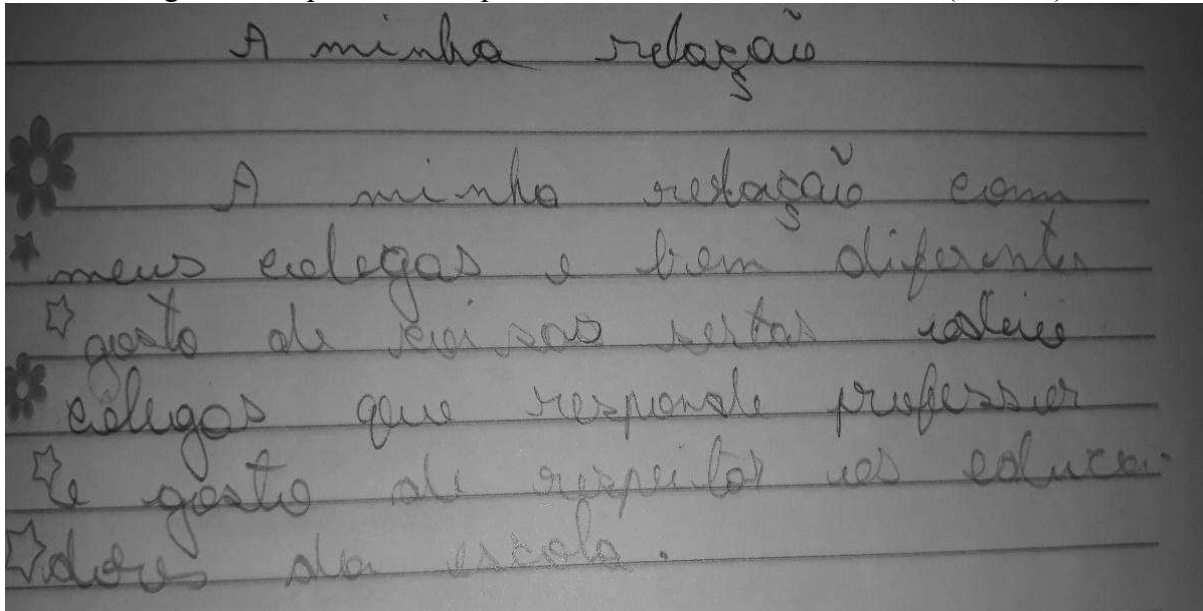 A minha relação
A minha relação com
meus colegas e bem diferente
gosto de coisas sertas odeio
colegas que responde professor
e gosto de respeitar os educa-
dores da escola.